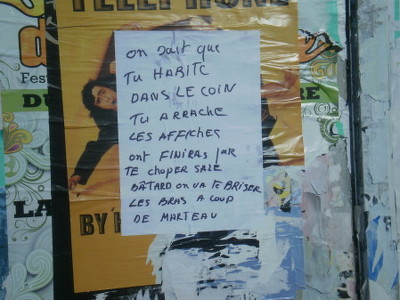 TELEPHONE
on sait que
TU HABITE
DANS LE COIN
TU ARRACHE
LES AFFICHES
ont FINIRAS par
TE CHOPER SALE
BÂTARD ON VA TE BRISER
LES BRAS A COUP
DE MARTEAU
Fest
DU
RE
LA
BY H